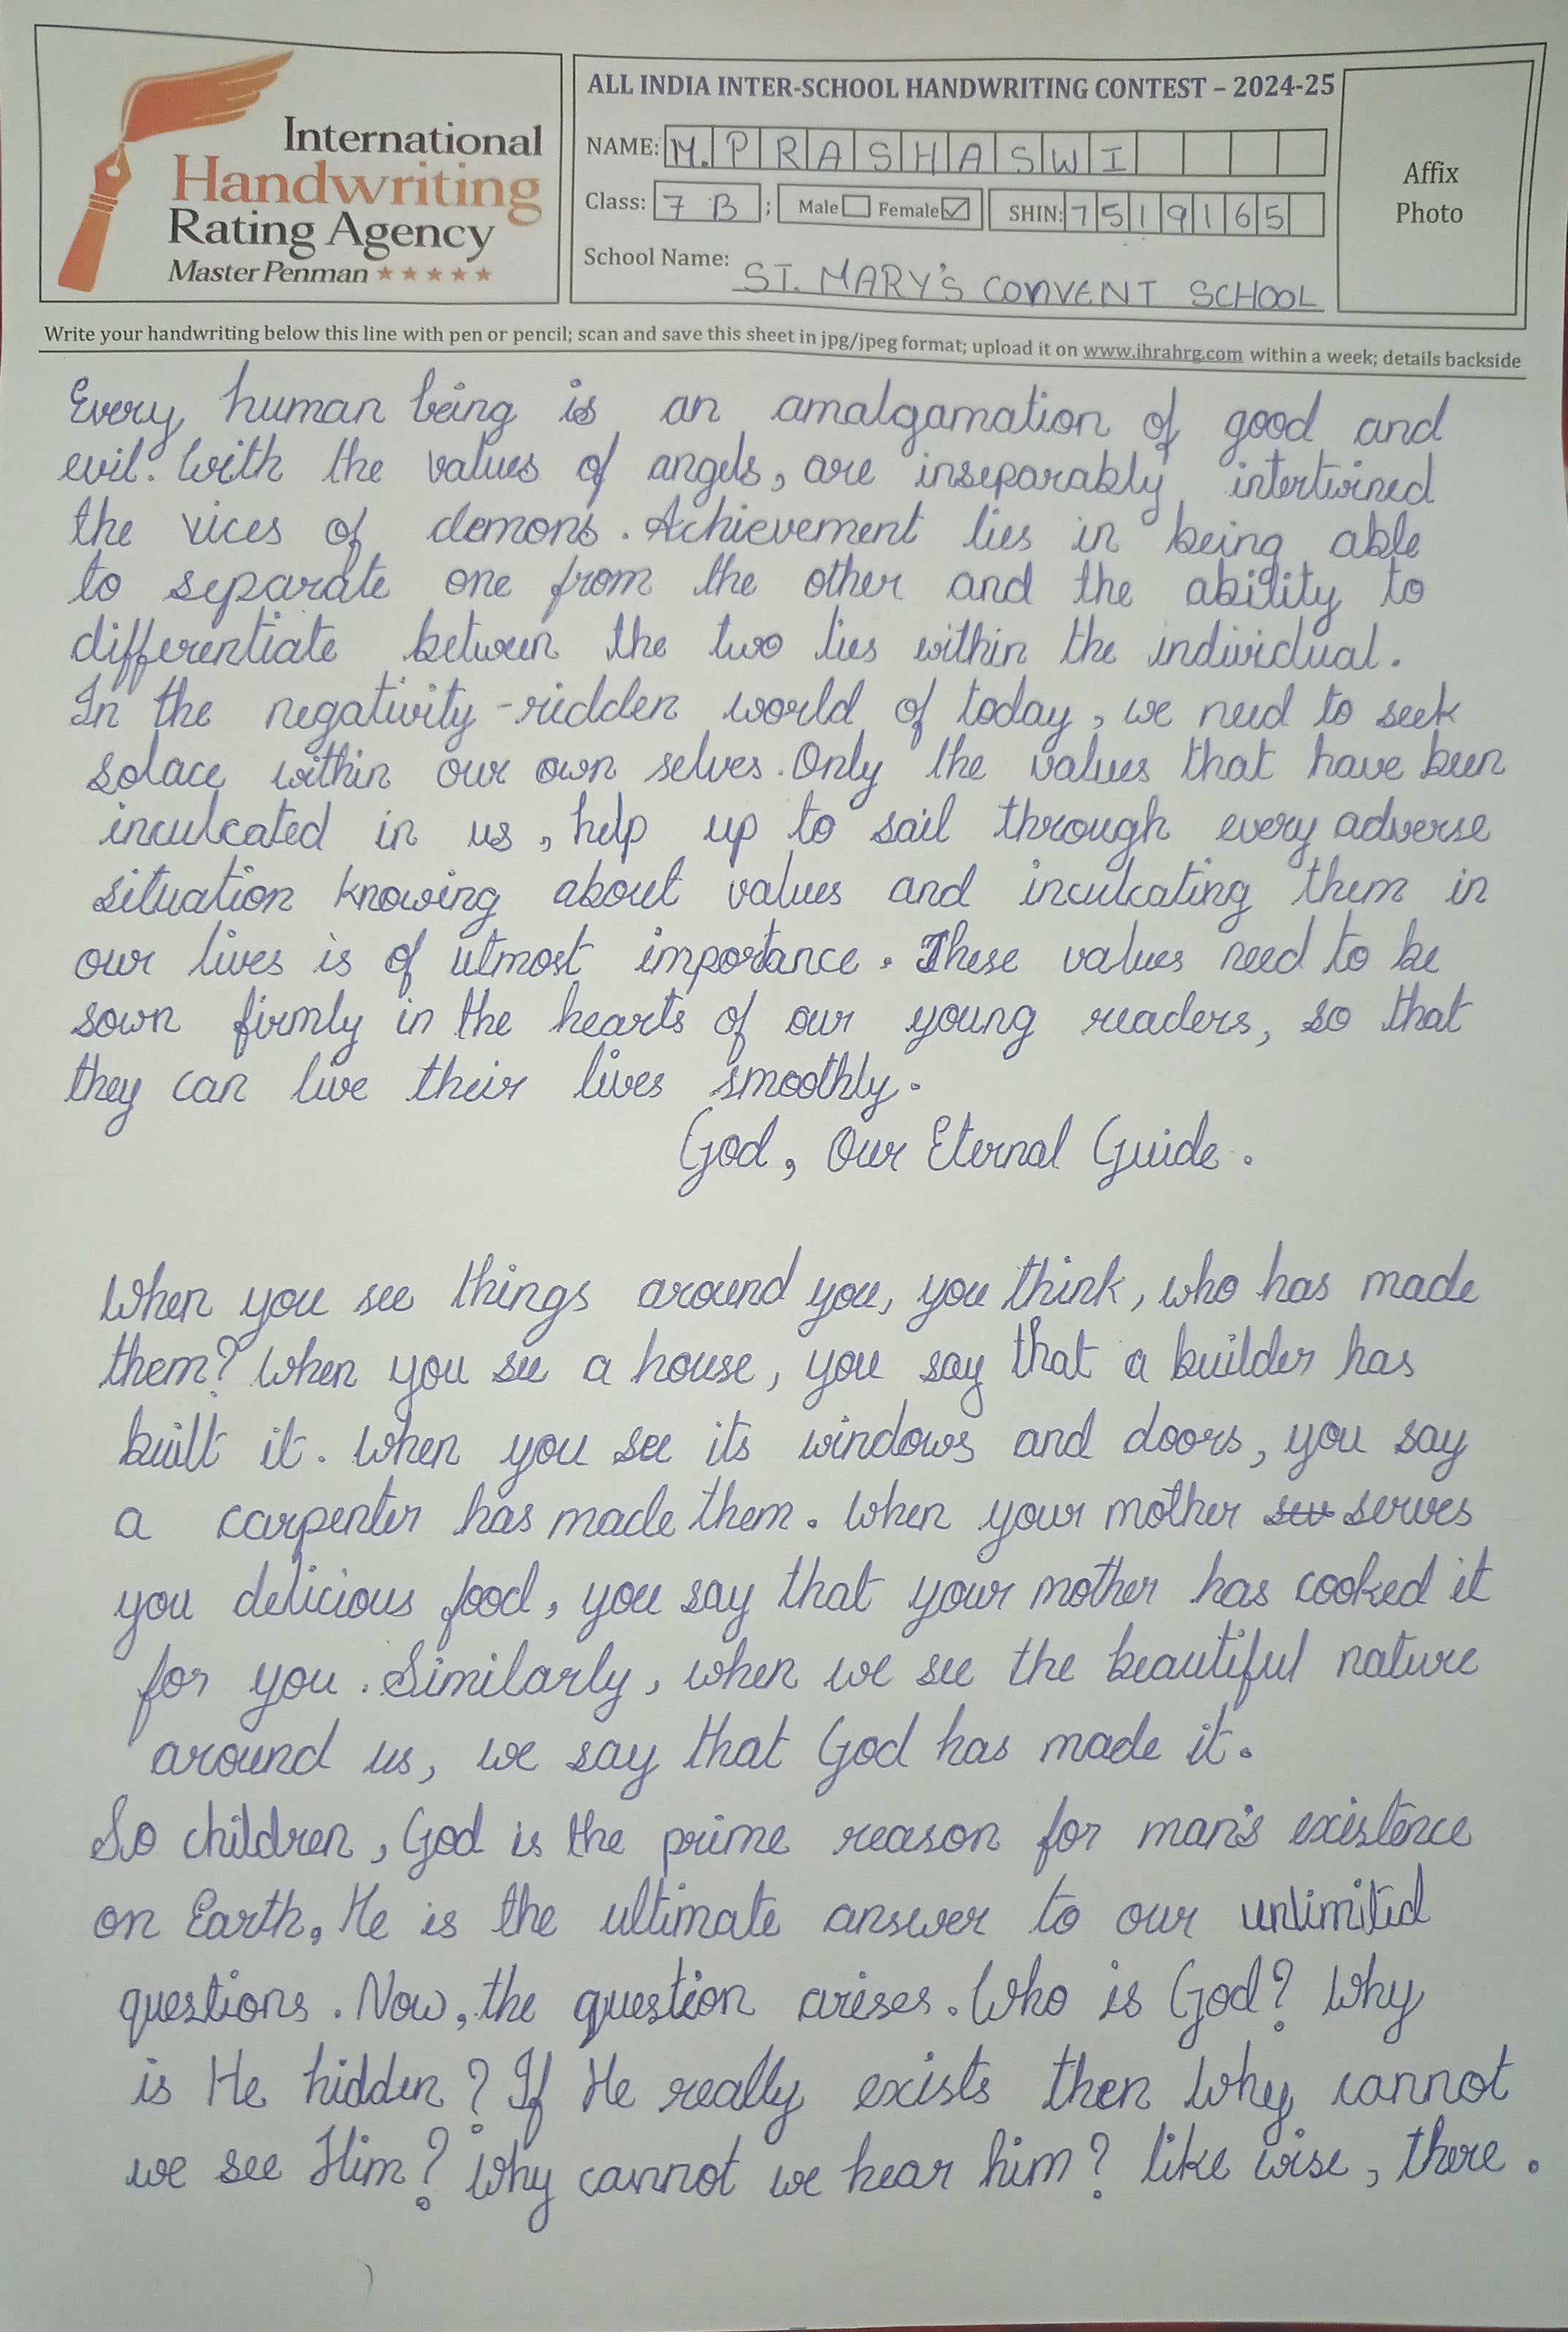 International
Handwriting
Rating Agency
Master Penman ★★★★★
ALL INDIA INTER-SCHOOL HANDWRITING CONTEST – 2024-25
NAME: M. PRASHASWI
Class: 7 B ; Male Female ✓ SHIN: 7519165
School Name: ST. MARY'S CONVENT SCHOOL
Affix
Photo
Write your handwriting below this line with pen or pencil; scan and save this sheet in jpg/jpeg format; upload it on www.ihrahrg.com within a week; details backside
Every human being is an amalgamation of good and
evil. With the values of angels, are inseparably intertwined
the vices of demons. Achievement lies in being able
to separate one from the other and the ability to
differentiate between the two lies within the individual.
In the negativity-ridden world of today, we need to seek
solace within our own selves. Only the values that have been
inculcated in us, help up to sail through every adverse
situation knowing about values and inculcating them in
our lives is of utmost importance. These values need to be
sown firmly in the hearts of our young readers, so that
they can live their lives smoothly.
God, Our Eternal Guide.
When you see things around you, you think, who has made
them? When you see a house, you say that a builder has
built it. When you see its windows and doors, you say
a carpenter has made them. When your mother serves
you delicious food, you say that your mother has cooked it
for you. Similarly, when we see the beautiful nature
around us, we say that God has made it.
So children, God is the prime reason for man's existence
on Earth. He is the ultimate answer to our unlimited
questions. Now, the question arises. Who is God? Why
is He hidden? If He really exists then why cannot
we see Him? Why cannot we hear him? like wise, there.